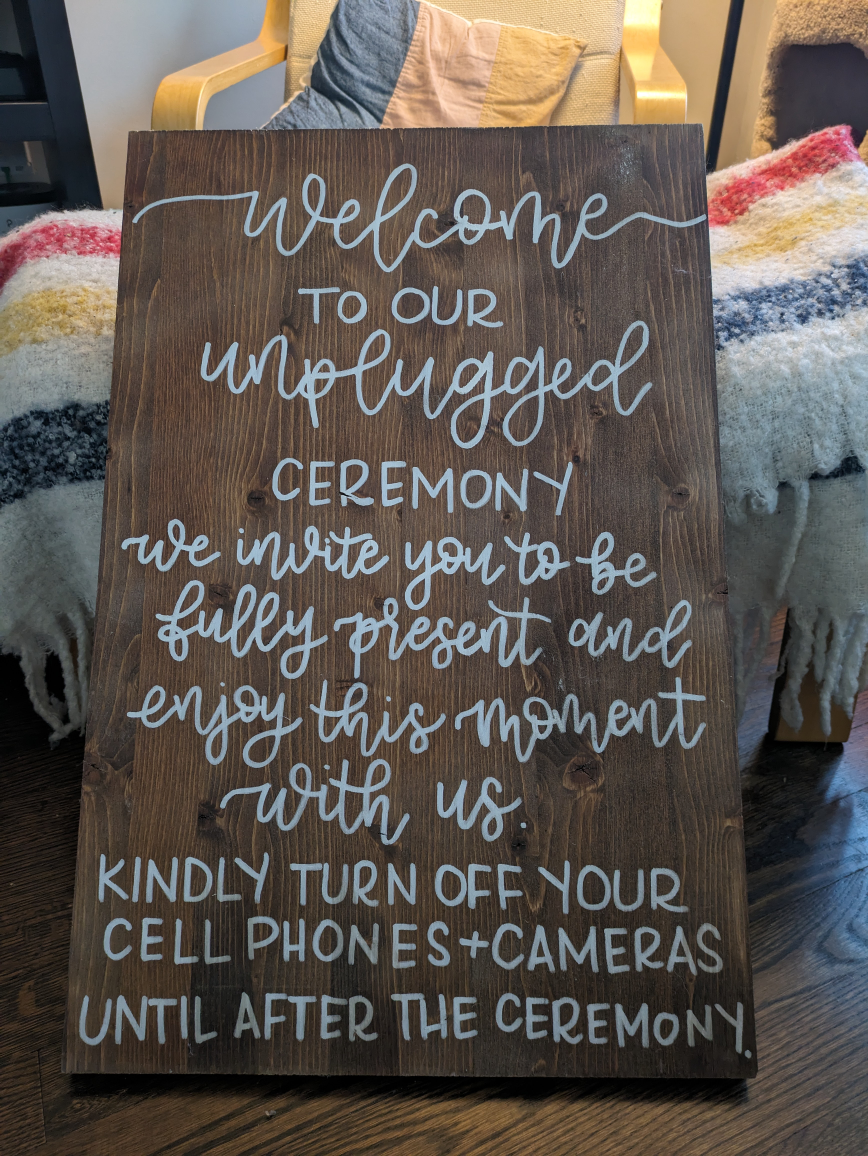 welcome
TO OUR
unplugged
CEREMONY
we invite you to be
fully present and
enjoy this moment
with us.
KINDLY TURN OFF YOUR
CELL PHONES+CAMERAS
UNTIL AFTER THE CEREMONY.